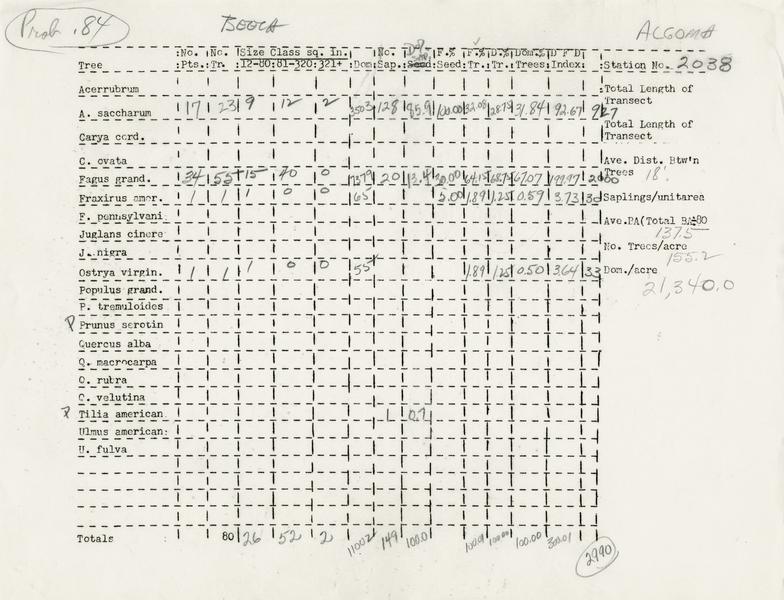 Prob .84
BEECH
ALGOMA
:No. :No. :Size Class sq. in. : :No. : :F.% :F.% :D.% :Dom.% :D F D
Tree :Pts.:Tr. :12-80:81-320:321+ :Dom:Sap.:Seed:Seed:Tr.:Tr.:Trees:Index: :Station No. 2038
Acerrubrum
:Total Length of Transect
A. saccharum 17 23 9 12 2 3503 128 85.9 100.00 32.08 28.75 31.84 92.67 927
Total Length of Transect
Carya cord.
C. ovata
Ave. Dist. Btw'n Trees 18'
Fagus grand. 34 55 15 40 0 7379 20 13.4 30.00 64.15 68.75 67.07 199.97 2000
Fraxirus amer. 1 1 1 0 0 65 5.00 1.89 1.25 0.59 3.73 Saplings/unitarea
F. pennsylvani
Ave.BA(Total BA÷80 137.5
Juglans cinere
J. nigra
No. Trees/acre 155.2
Ostrya virgin. 1 1 1 0 0 55 1.89 1.25 0.50 3.64 33 Dom./acre
21,340.0
Populus grand.
P. tremuloides
P Prunus serotin
Quercus alba
Q. macrocarpa
Q. rubra
C. velutina
P Tilia american. 1 0.7
Ulmus american:
U. fulva
Totals 80 26 52 2 11002 149 100.0 100.01 100.00 100.00 300.01
2990